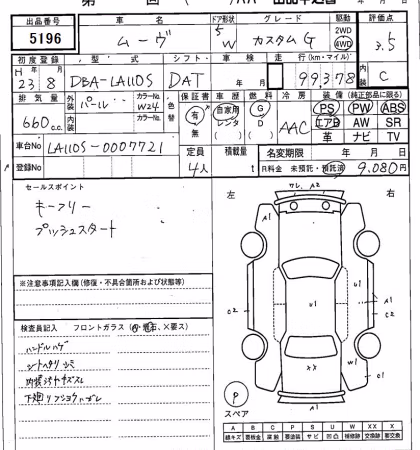 出品番号 車名 ドア形状 グレード 駆動 評価点
5196 ムーヴ 5 W カスタム G 2WD 4WD 3.5
初度登録 型式 シフト 車検 走行(km・マイル) 内装
H 23年 8月 DBA-LA110S DAT 年 月 99,378 C
排気量 外装色 パール カラーNo. W24 内装色 カラーNo. 色替 保証書 車歴 燃料 冷房 装備(純正部品に限る)
660 c.c. 有 無 自家用 レンタ ( ) G D ( ) AAC PS PW ABS
エアB AW SR
革 ナビ TV
車台No LA110S-0007721 定員 積載量 名変期限 年 月 日
登録No 4人 t R料金 未預託・預託済 9,080円
セールスポイント
キーフリー
プッシュスタート
左 右
ワレ, A2
A1
※注意事項記入欄(修復・不具合箇所および状態等)
U1 U1 A1
C2 C2
検査員記入 フロントガラス
ハンドルハゲ
シートヘタリ シミ
内装汚れキズスレ
XX W1
C1
P
スペア
A1
A B C P S U W XX X
線キズ 要板金 腐蝕 要塗装 サビ 凹凸 補修跡 交換跡 要交換